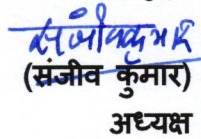 संजीवकुमार
(संजीव कुमार)
अध्यक्ष